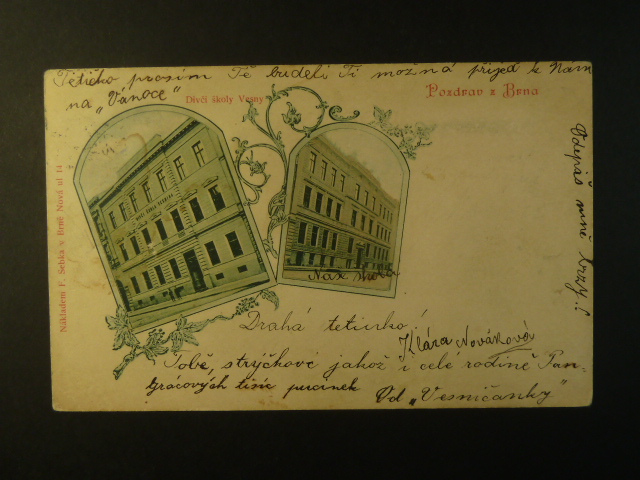 Tetičko prosím Tě budeli Ti možná přijeď k Nám
na „Vánoce"
Dívčí školy Vesny
Pozdrav z Brna
Nákladem F. Sebka v Brně Nová ul 14
Odepíš mně brzy!
Naše škola
Drahá tetinko!
Klára Nováková
Tobě, strýčkovi jakož i celé rodině Pan-
grácových tisíc pusinek
Od „Vesničanky"